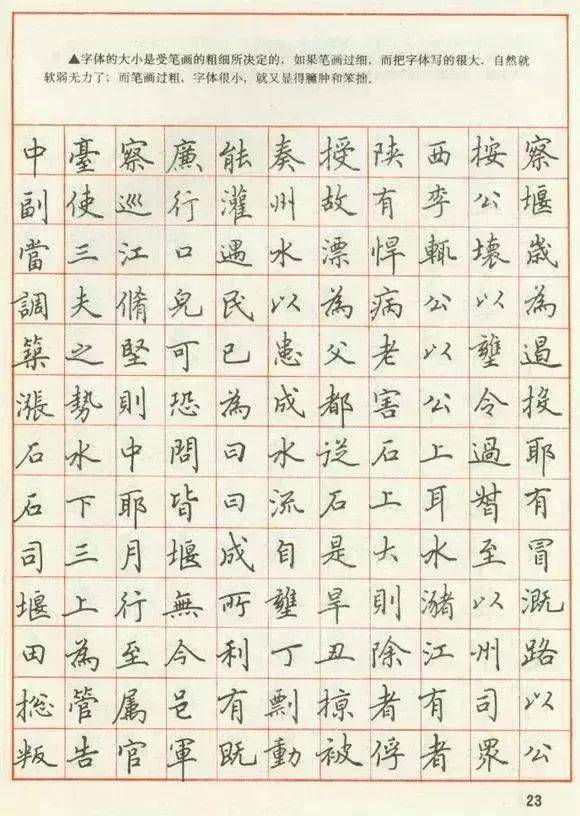 ▲字体的大小是受笔画的粗细所决定的，如果笔画过细，而把字体写的很大，自然就
软弱无力了；而笔画过粗，字体很小，就又显得臃肿和笨拙。
中臺察廉能奏授陕西按察
副使巡行灌州故有李公堰
當三江口遇水漂悍輒壞歲
調夫脩皃民以為病公以為
築之堅可已患父老以壅遏
漲勢則恐為成都害公令投
石水中問曰水従石上過耶
石下耶皆曰流石上耳有
司三月堰成自是大水至冒
堰上行無所壅旱則瀦以溉
田為至今利丁丑除江州路
総管属邑有剽掠者有司以
叛告官軍既動被俘者眾公
23